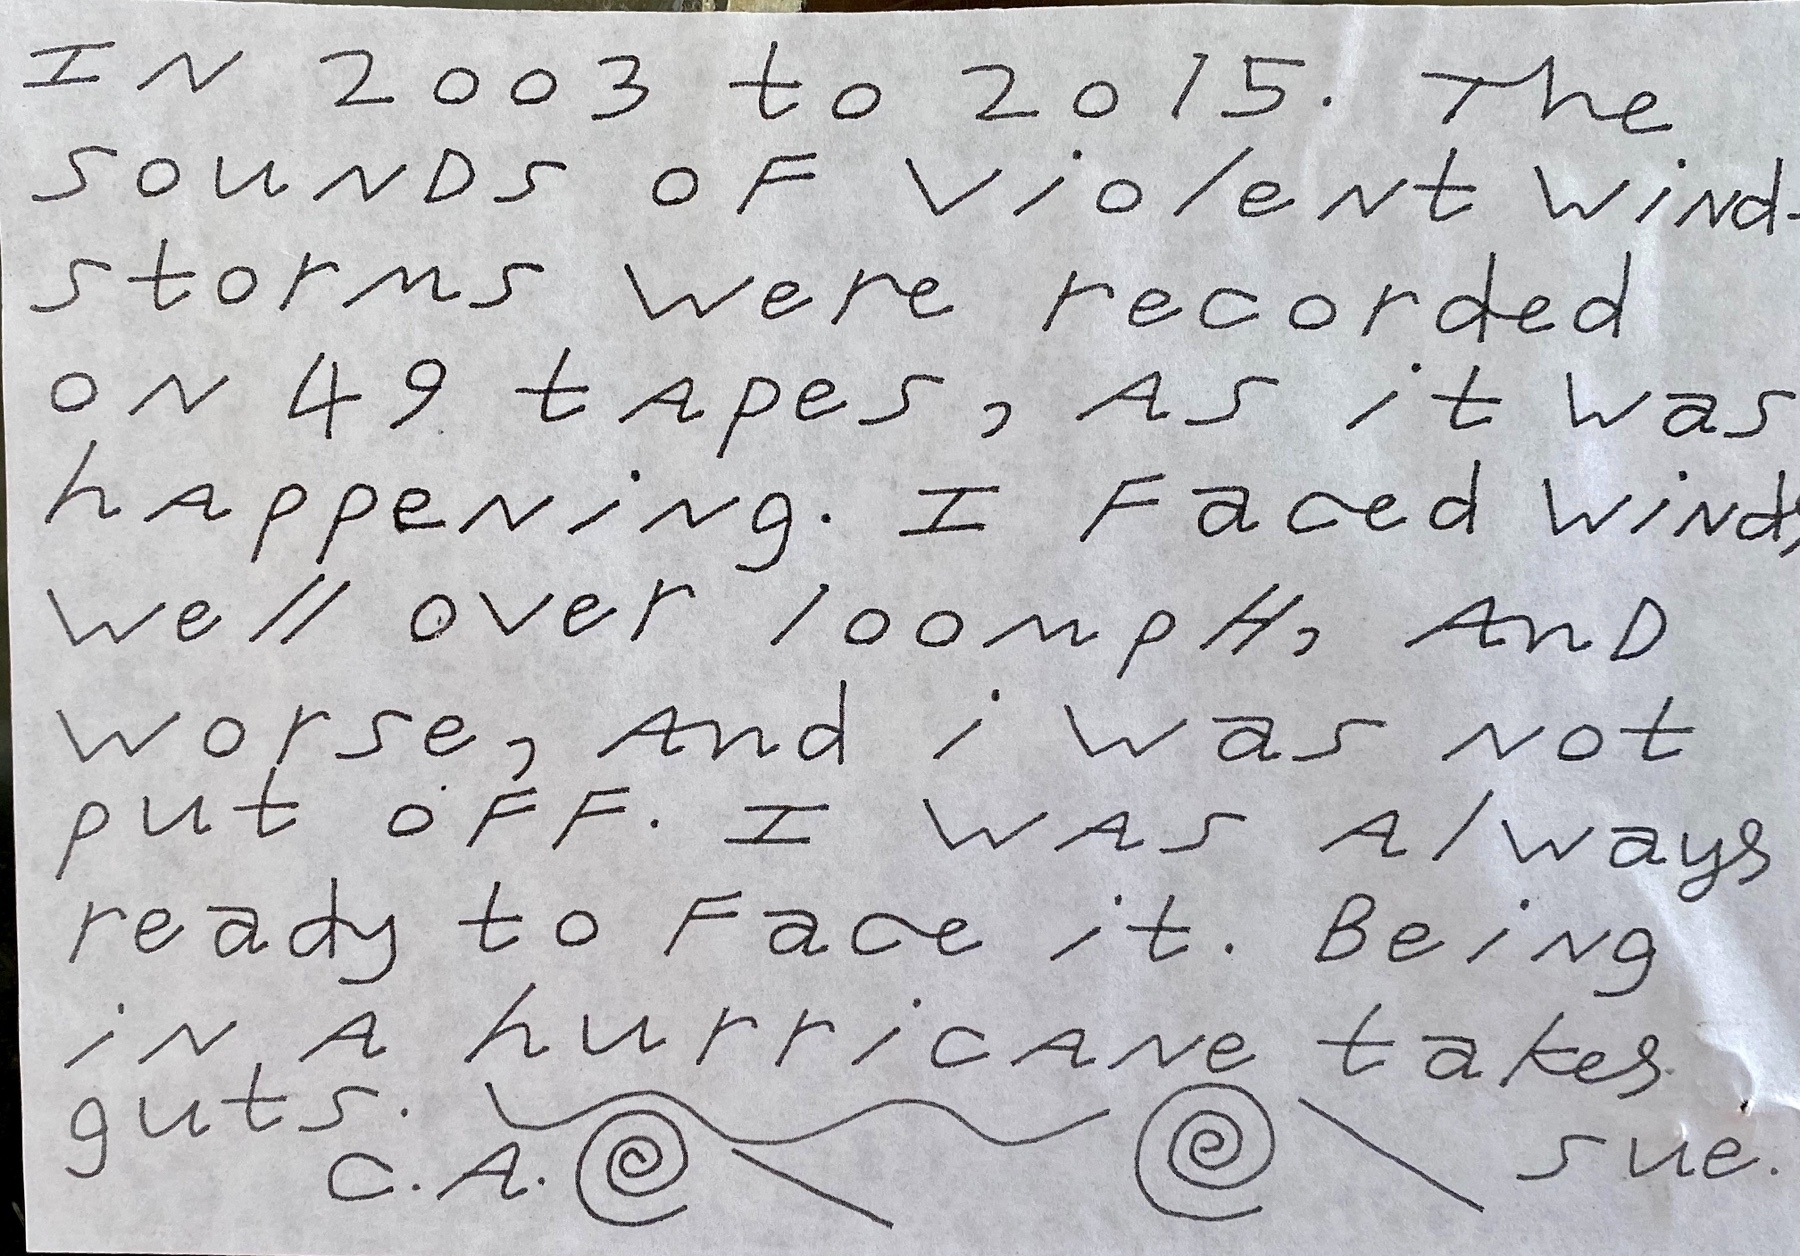 IN 2003 to 2015. The
SOUNDS OF Violent Wind-
storms were recorded
ON 49 tApes, AS it was
hAppening. I Faced Winds
well over 100mpH, AnD
worse, And i was not
put oFF. I WAS Always
ready to Face it. Being
iN A hurricANe takes
guts.
C.A. Sue.